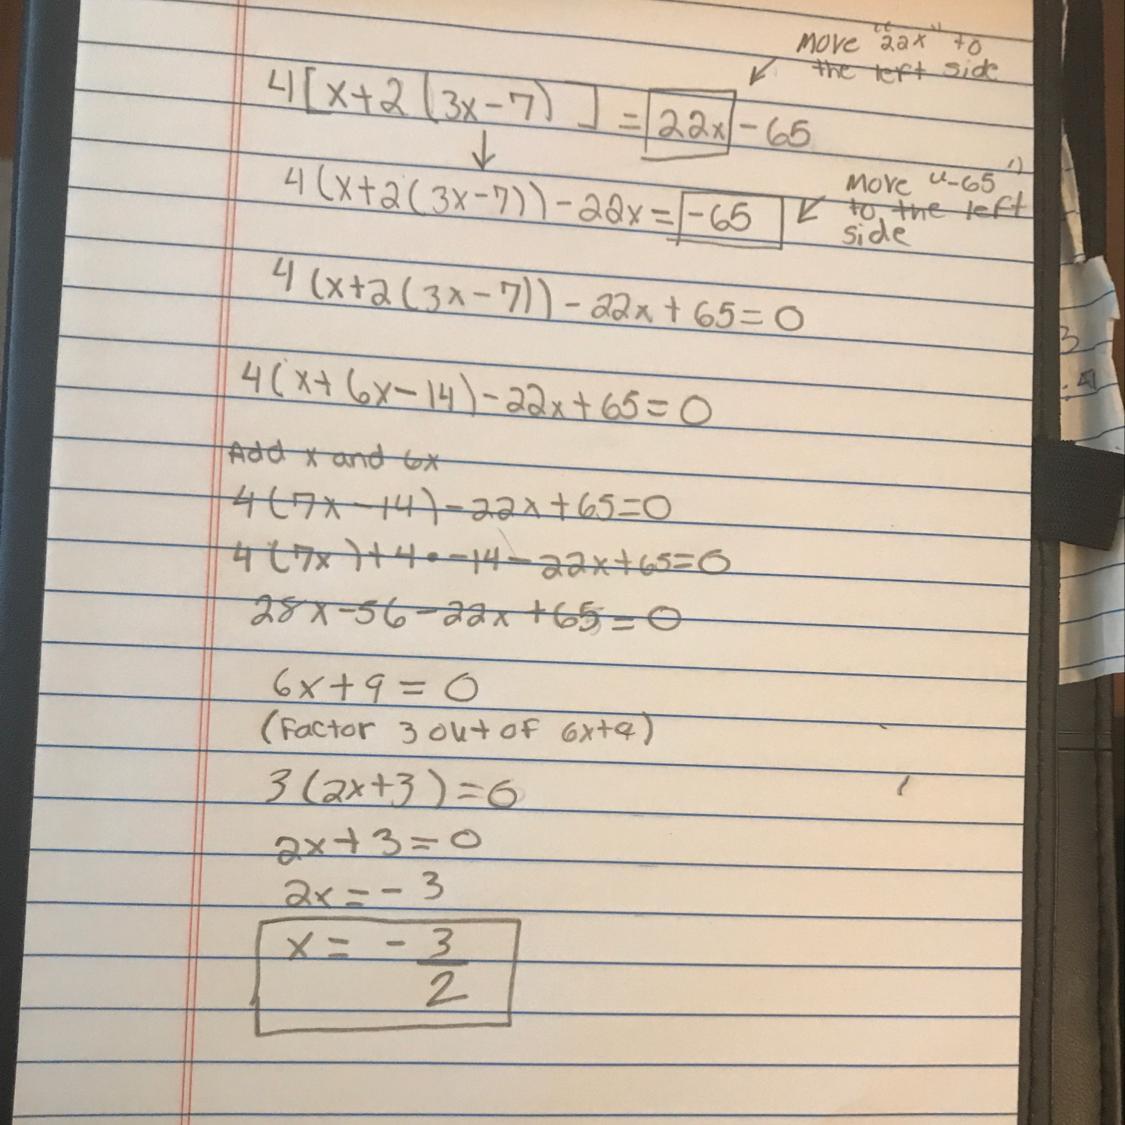 Move "22x" to
the left side
4[x+2(3x-7)] = 22x - 65
4(x+2(3x-7)) - 22x = -65
Move "-65"
to the left
side
4(x+2(3x-7)) - 22x + 65 = 0
4(x+6x-14) - 22x + 65 = 0
Add x and 6x
4(7x-14) - 22x + 65 = 0
4(7x) + 4 • -14 - 22x + 65 = 0
28x - 56 - 22x + 65 = 0
6x + 9 = 0
(Factor 3 out of 6x+9)
3(2x+3) = 0
2x + 3 = 0
2x = -3
x = - 3/2
3